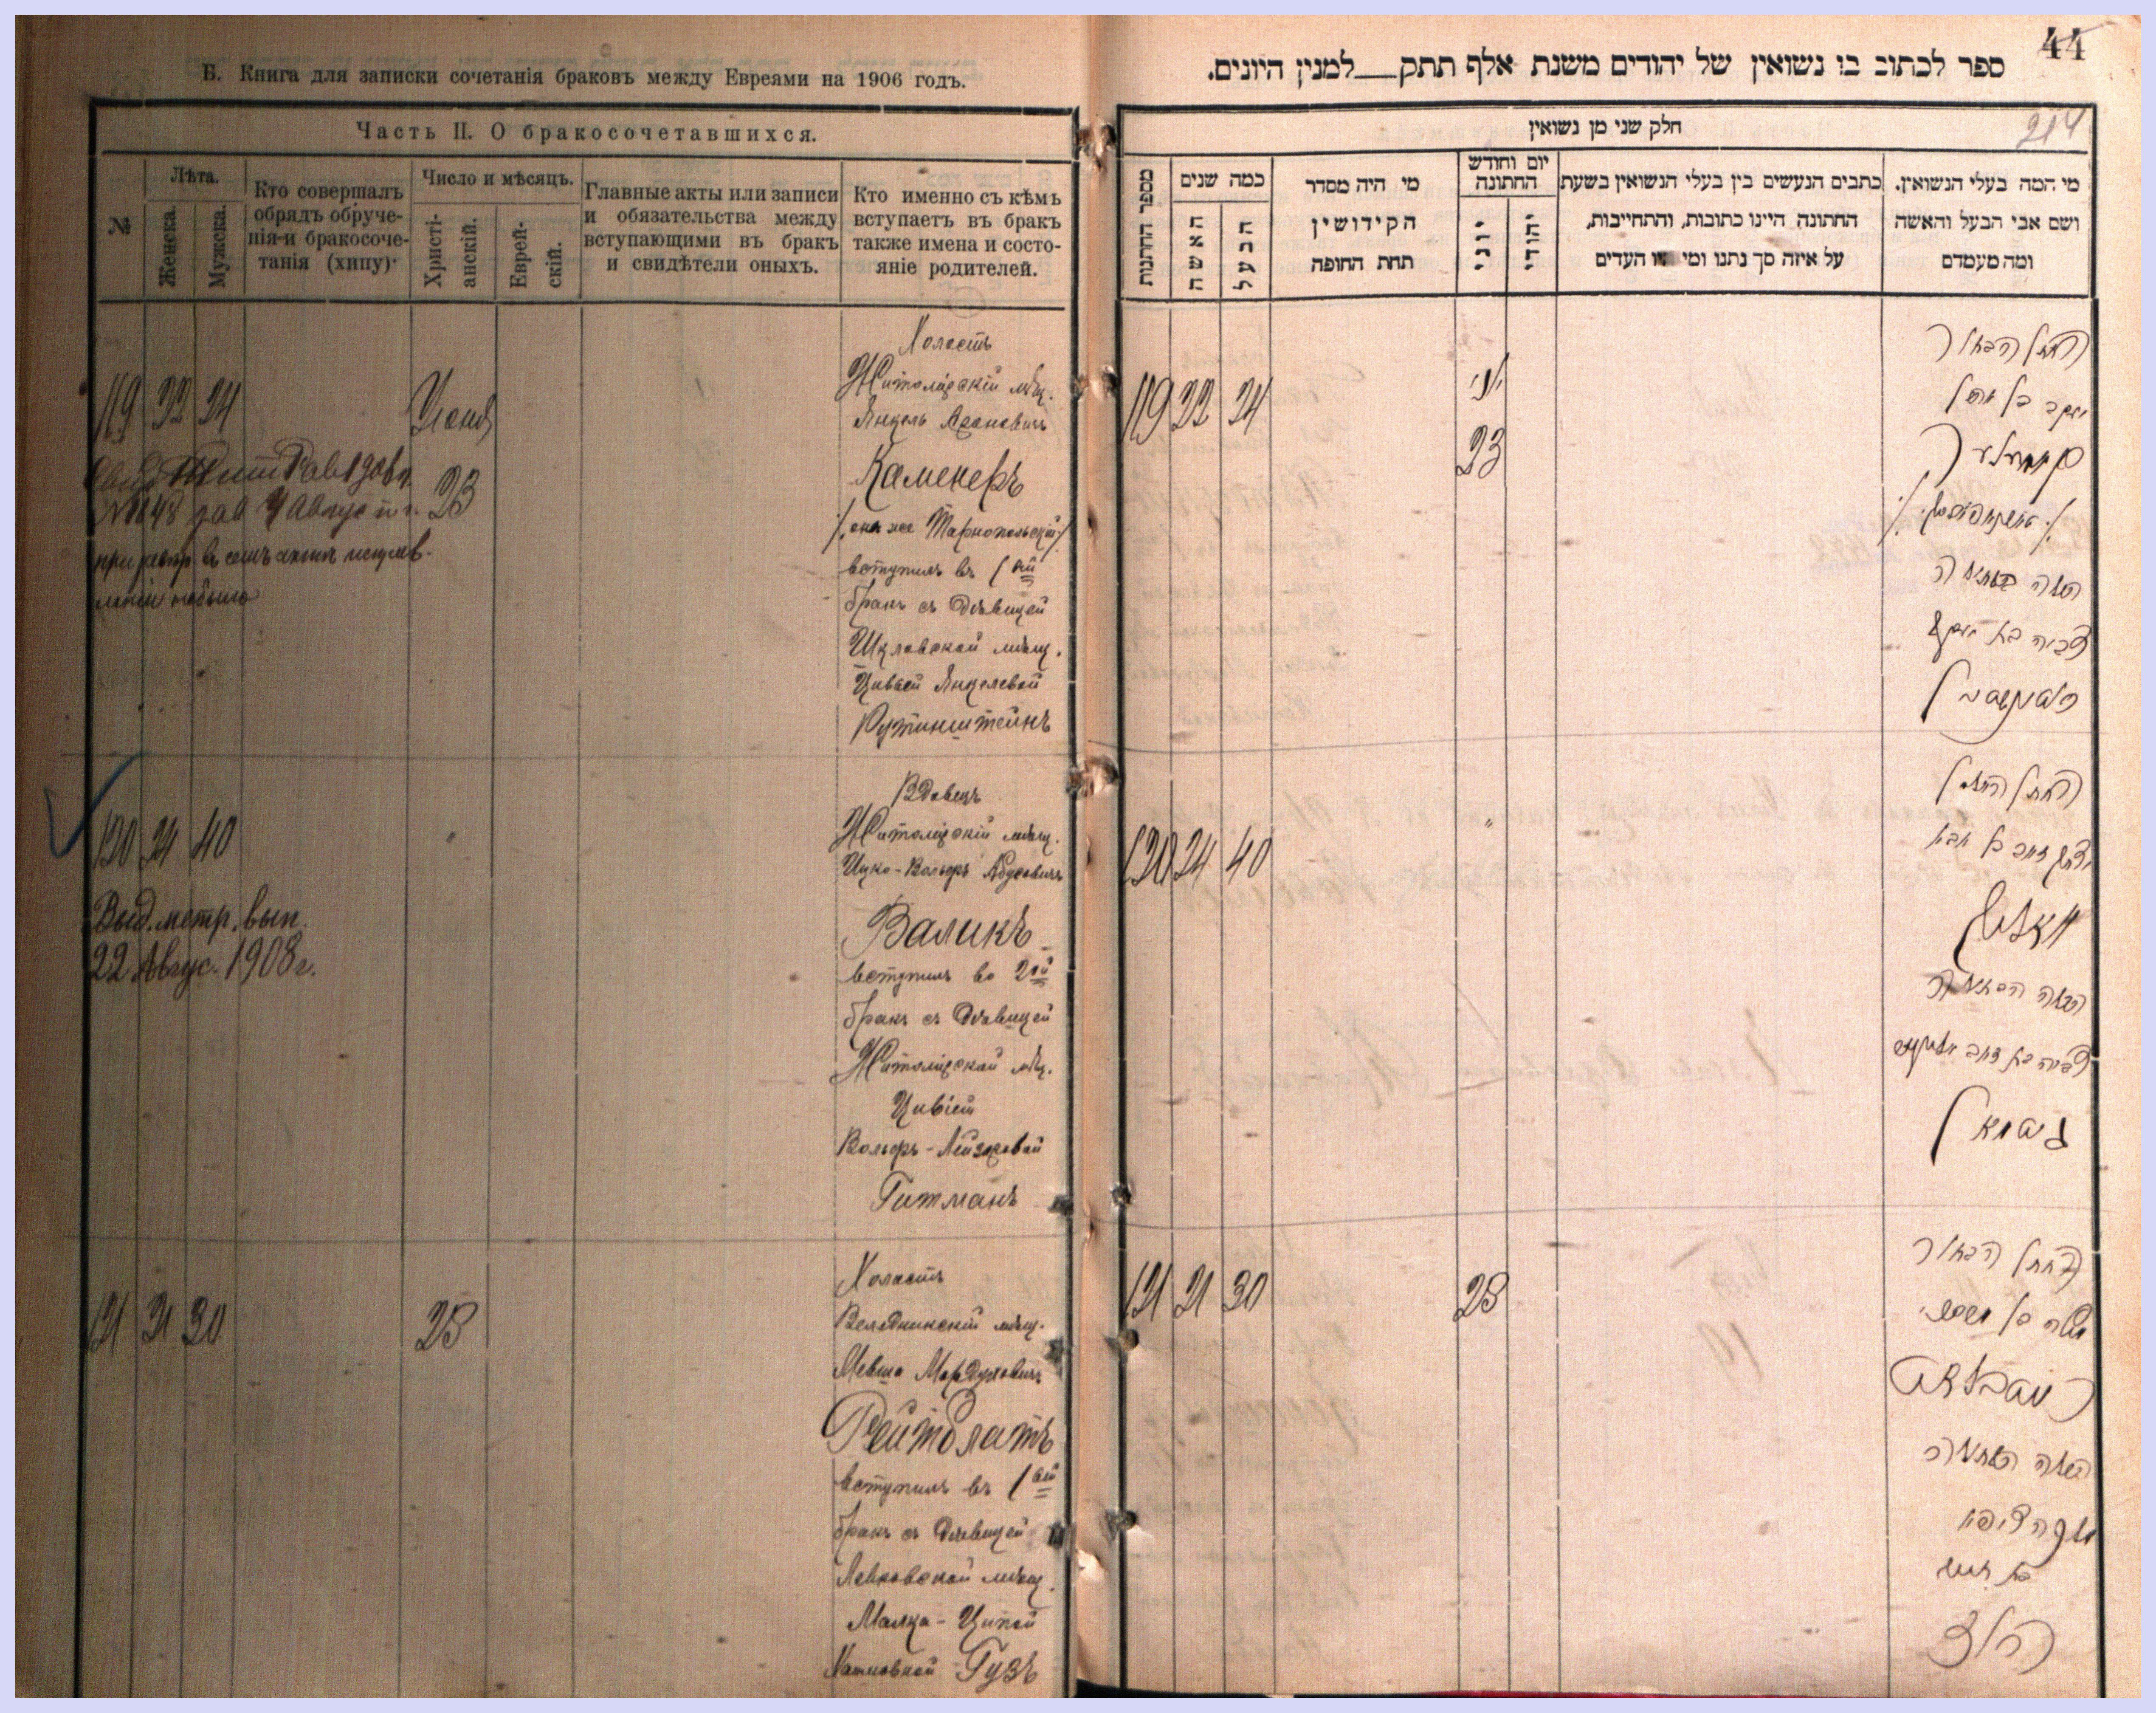 Б. Книга для записки сочетанія браковъ между Евреями на 1906 годъ.
Часть II. О бракосочетавшихся.
№
Лѣта.
Женска.
Мужска.
Кто совершалъ
обрядъ обруче-
нія и бракосоче-
танія (хипу)
Число и мѣсяцъ.
Христі-
анскій.
Еврей-
скій.
Главные акты или записи
и обязательства между
вступающими въ бракъ
и свидѣтели оныхъ.
Кто именно съ кѣмъ
вступаетъ въ бракъ
также имена и состо-
яніе родителей.
119 22 24
Іюня
23
№ 1648
Холостъ
Житомірскій мѣщ.
Янкель Ароновичъ
Каменеръ
/. онъ же Тарнопольскій ./
вступилъ въ 1ый
бракъ съ дѣвицей
Шкловской мѣщ.
Цивьей Янкелевой
Рутинштейнъ
120 24 40
"
Выд. метр. вып.
22 Авгус. 1908 г.
Вдовецъ
Житомірскій мѣщ.
Ицко-Вольфъ Абусовичъ
Валикъ
вступилъ во 2ой
бракъ съ дѣвицей
Житомірской мѣщ.
Цивіей
Вольфъ-Лейзеровой
Гитманъ
121 21 30
28
Холостъ
Веледникскій мѣщ.
Мевша Мордуховичъ
Рейтблатъ
вступилъ въ 1ый
бракъ съ дѣвицей
Левковской мѣщ.
Малка-Ципой
Гузъ
44
ספר לכתוב בו נשואין של יהודים משנת אלף תתק למנין היונים.
214
חלק שני מן נשואין
מספר החתונות
כמה שנים
האשה
הבעל
מי היה מסדר
הקידושין
תחת החופה
יום וחודש
החתונה
יוני
יהודי
כתבים הנעשים בין בעלי הנשואין בשעת
החתונה היינו כתובות, והתחייבות,
על איזה סך נתנו ומי העדים
מי המה בעלי הנשואין.
ושם אבי הבעל והאשה
ומה מעמדם
119 22 24
יוני
23
החתן הבחור
יעקב בן אהרן
עם הבתולה
צביה בת יעקב
120 24 40
"
החתן האלמן
יצחק זאב בן אבא
וואליק
עם הבתולה
צביה בת זאב אליעזר
גיטמאן
121 21 30
28
החתן הבחור
משה בן מרדכי
רייטבלאט
עם הבתולה
מלכה ציפא
הוז